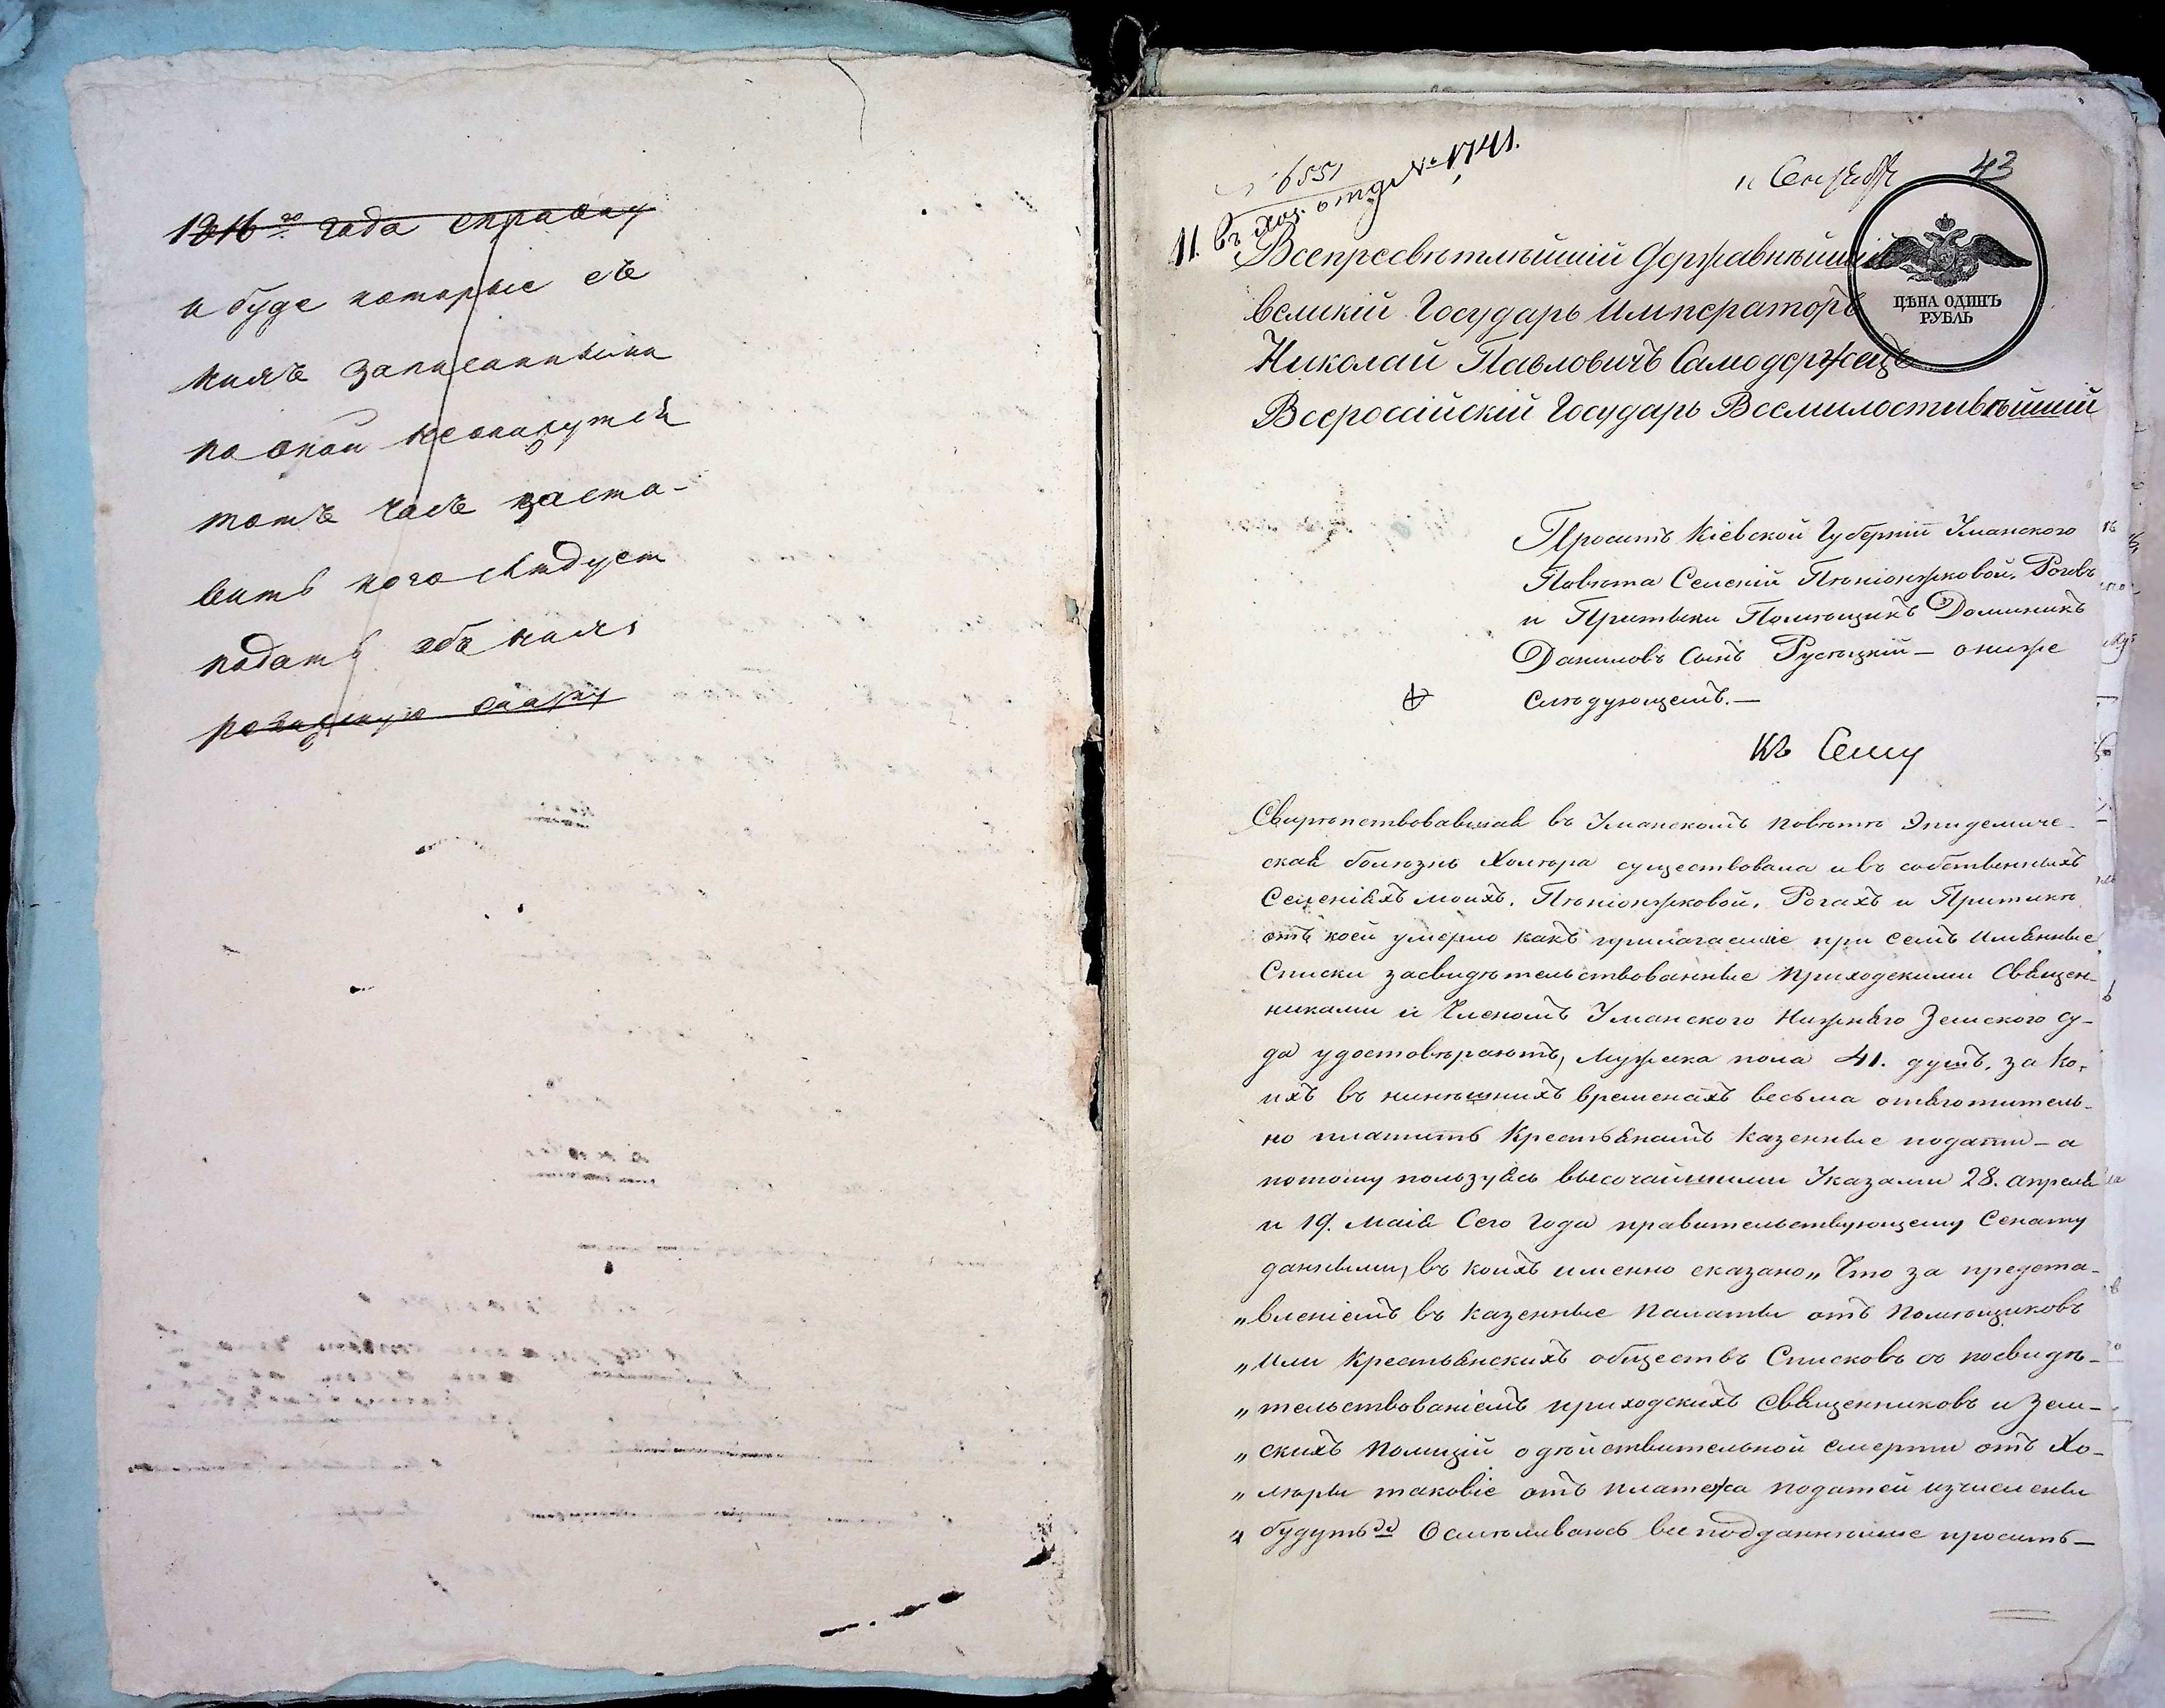 1816го года справку
и буде которые съ
нихъ записанными
по оной неокажутся
тотъ часъ заста-
вить кого следует
подать объ нихъ
ревизскую скаску
6551
въ хоз. отдѣ №1741.
11 Сентября
43
11.
ЦѢНА ОДИНЪ
РУБЛЬ
Всепресвѣтлѣйшій Державнѣйшій
великій Государь Императоръ
Николай Павловичъ Самодержецъ
Всероссійскій Государь Всемилостивѣйший
Проситъ Кіевской Губерніи Уманского
Повѣта Селеній Пѣніонжковой, Роговъ
и Притыки Помѣщикъ Доминикъ
Даниловъ Сынъ Русѣцкій — о ниже
слѣдующемъ. —
Къ Сему
Свирѣпствовавшая въ Уманскомъ повѣтѣ Эпидемиче-
ская болѣзнь Холѣра существовала и въ собственныхъ
Селеніяхъ моихъ, Пѣніонжковой, Рогахъ и Притикѣ
отъ коей умерло какъ прилагаемые при семъ Имянные
Списки засвидѣтельствованные приходскими Священ-
никами и Членомъ Уманского Нижняго Земского су-
да удостовѣряютъ, мужска пола 41. душъ, за ко-
ихъ въ нинѣшнихъ временахъ весьма отяготитель-
но платить Крестьянамъ казенные подати — а
потому пользуясь высочайшими Указами 28. апреля
и 19. Маія Сего Года правительствующему Сенату
данными, въ коихъ именно сказано „ Что за предста-
„ вленіемъ въ казенные Палаты отъ помѣщиковъ
„ Или Крестьянскихъ обществъ Списковъ съ посвидѣ-
„ тельствованіемъ приходскихъ священниковъ и Зем-
„ скихъ полицій о дѣйствительной смерти отъ Хо-
„ лѣры таковіе отъ платежа податей изчислены
„ будутъ „ Осмѣливаюсь вѣподданнѣише просить —